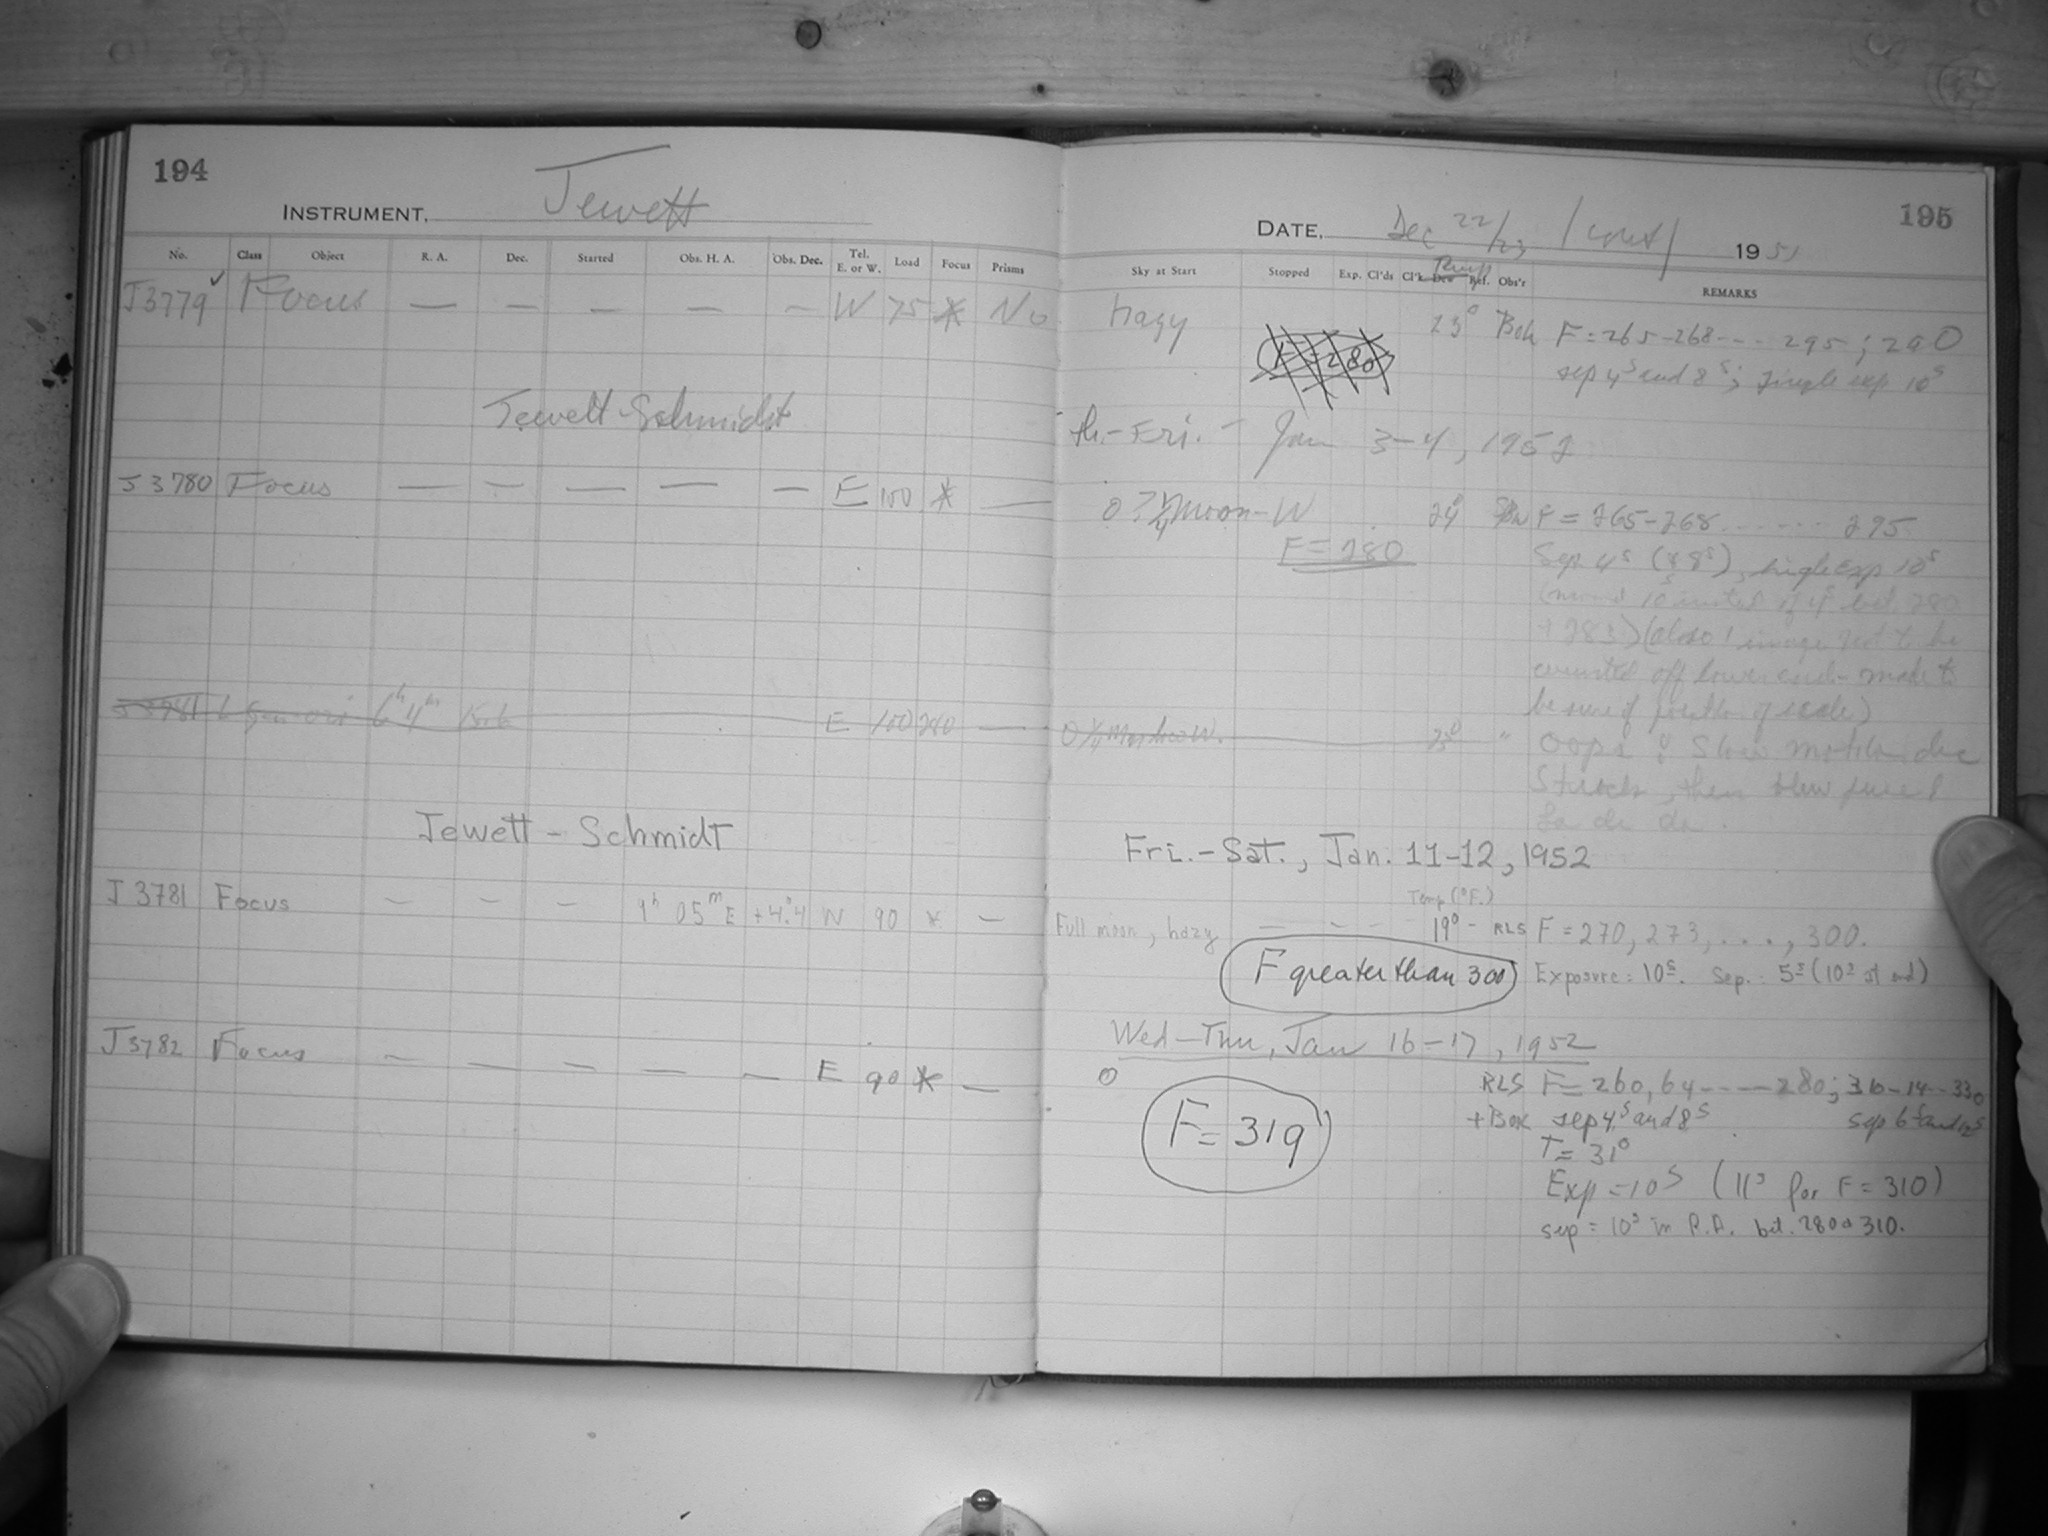 194
INSTRUMENT, Jewett
No. Class Object R. A. Dec. Started Obs. H. A. Obs. Dec. Tel. E. or W. Load Focus Prisms
J3779 ✓ Focus — — — — — W 75 * No
Jewett-Schmidt
J3780 Focus — — — — — E 100 * —
J3781 6h 4m 15.6 E 100 280 —
Jewett - Schmidt
J3781 Focus — — — 1h 05m E +4°.4 W 90 * —
J3782 Focus — — — — — E 90 * —
195
DATE, Dec 22/23 /cont/ 1951
Sky at Start Stopped Exp. Cl'ds Cl'k Dew Temp Ref. Obs'r REMARKS
hazy 23° Bok F = 265-268 --- 295 ; 290
F = 280
sep 4s and 8s; single exp 10s
Th.-Fri. - Jan 3-4, 1952
0 ? 1/4 Moon - W 24° F = 265-268 ...... 295
F = 280
Sep 4s (& 8s), single exp 10s
280
+ 283) (also 1 image not to be
counted off lower end - made to
be sure of position of scale)
0 1/4 Moon low W. 25° " Oops! Slow motion dec
Struck, then blew fuse!
La de da.
Fri.-Sat., Jan. 11-12, 1952
Temp (°F.)
Full moon, hazy — — - 19° - RLS F = 270, 273, ..., 300.
F greater than 300
Exposure = 10s. Sep.: 5s (10s at end)
Wed-Thu, Jan 16-17, 1952
0 RLS F = 260, 64 ---- 280; 310-14--330
+Bok sep 4s and 8s sep 6s and 12s
F = 319
T = 31°
Exp = 10s (11s for F = 310)
sep = 10s in R.A. bet. 280 & 310.